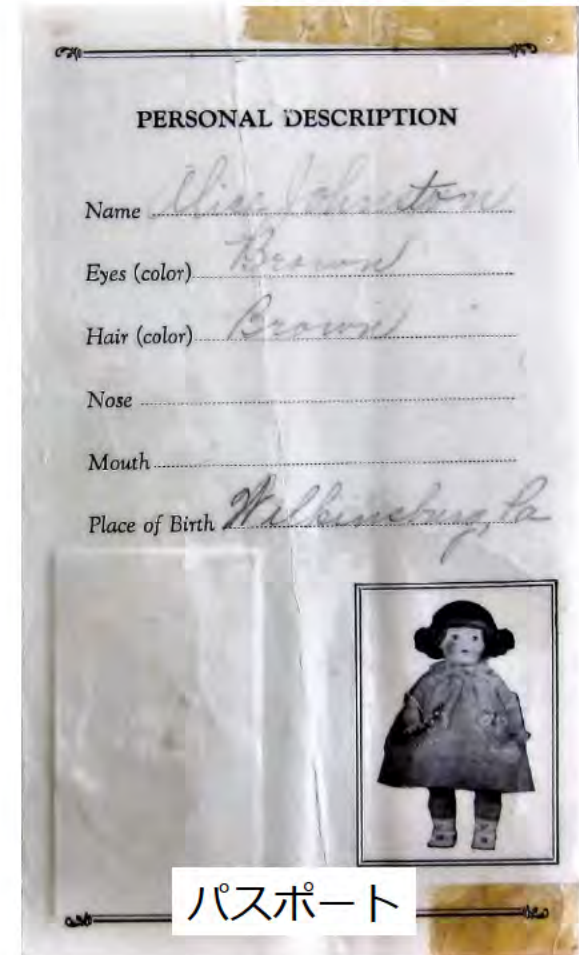 PERSONAL DESCRIPTION
Name Alice Johnston
Eyes (color) Brown
Hair (color) Brown
Nose
Mouth
Place of Birth Wilkinsburg, Pa
パスポート